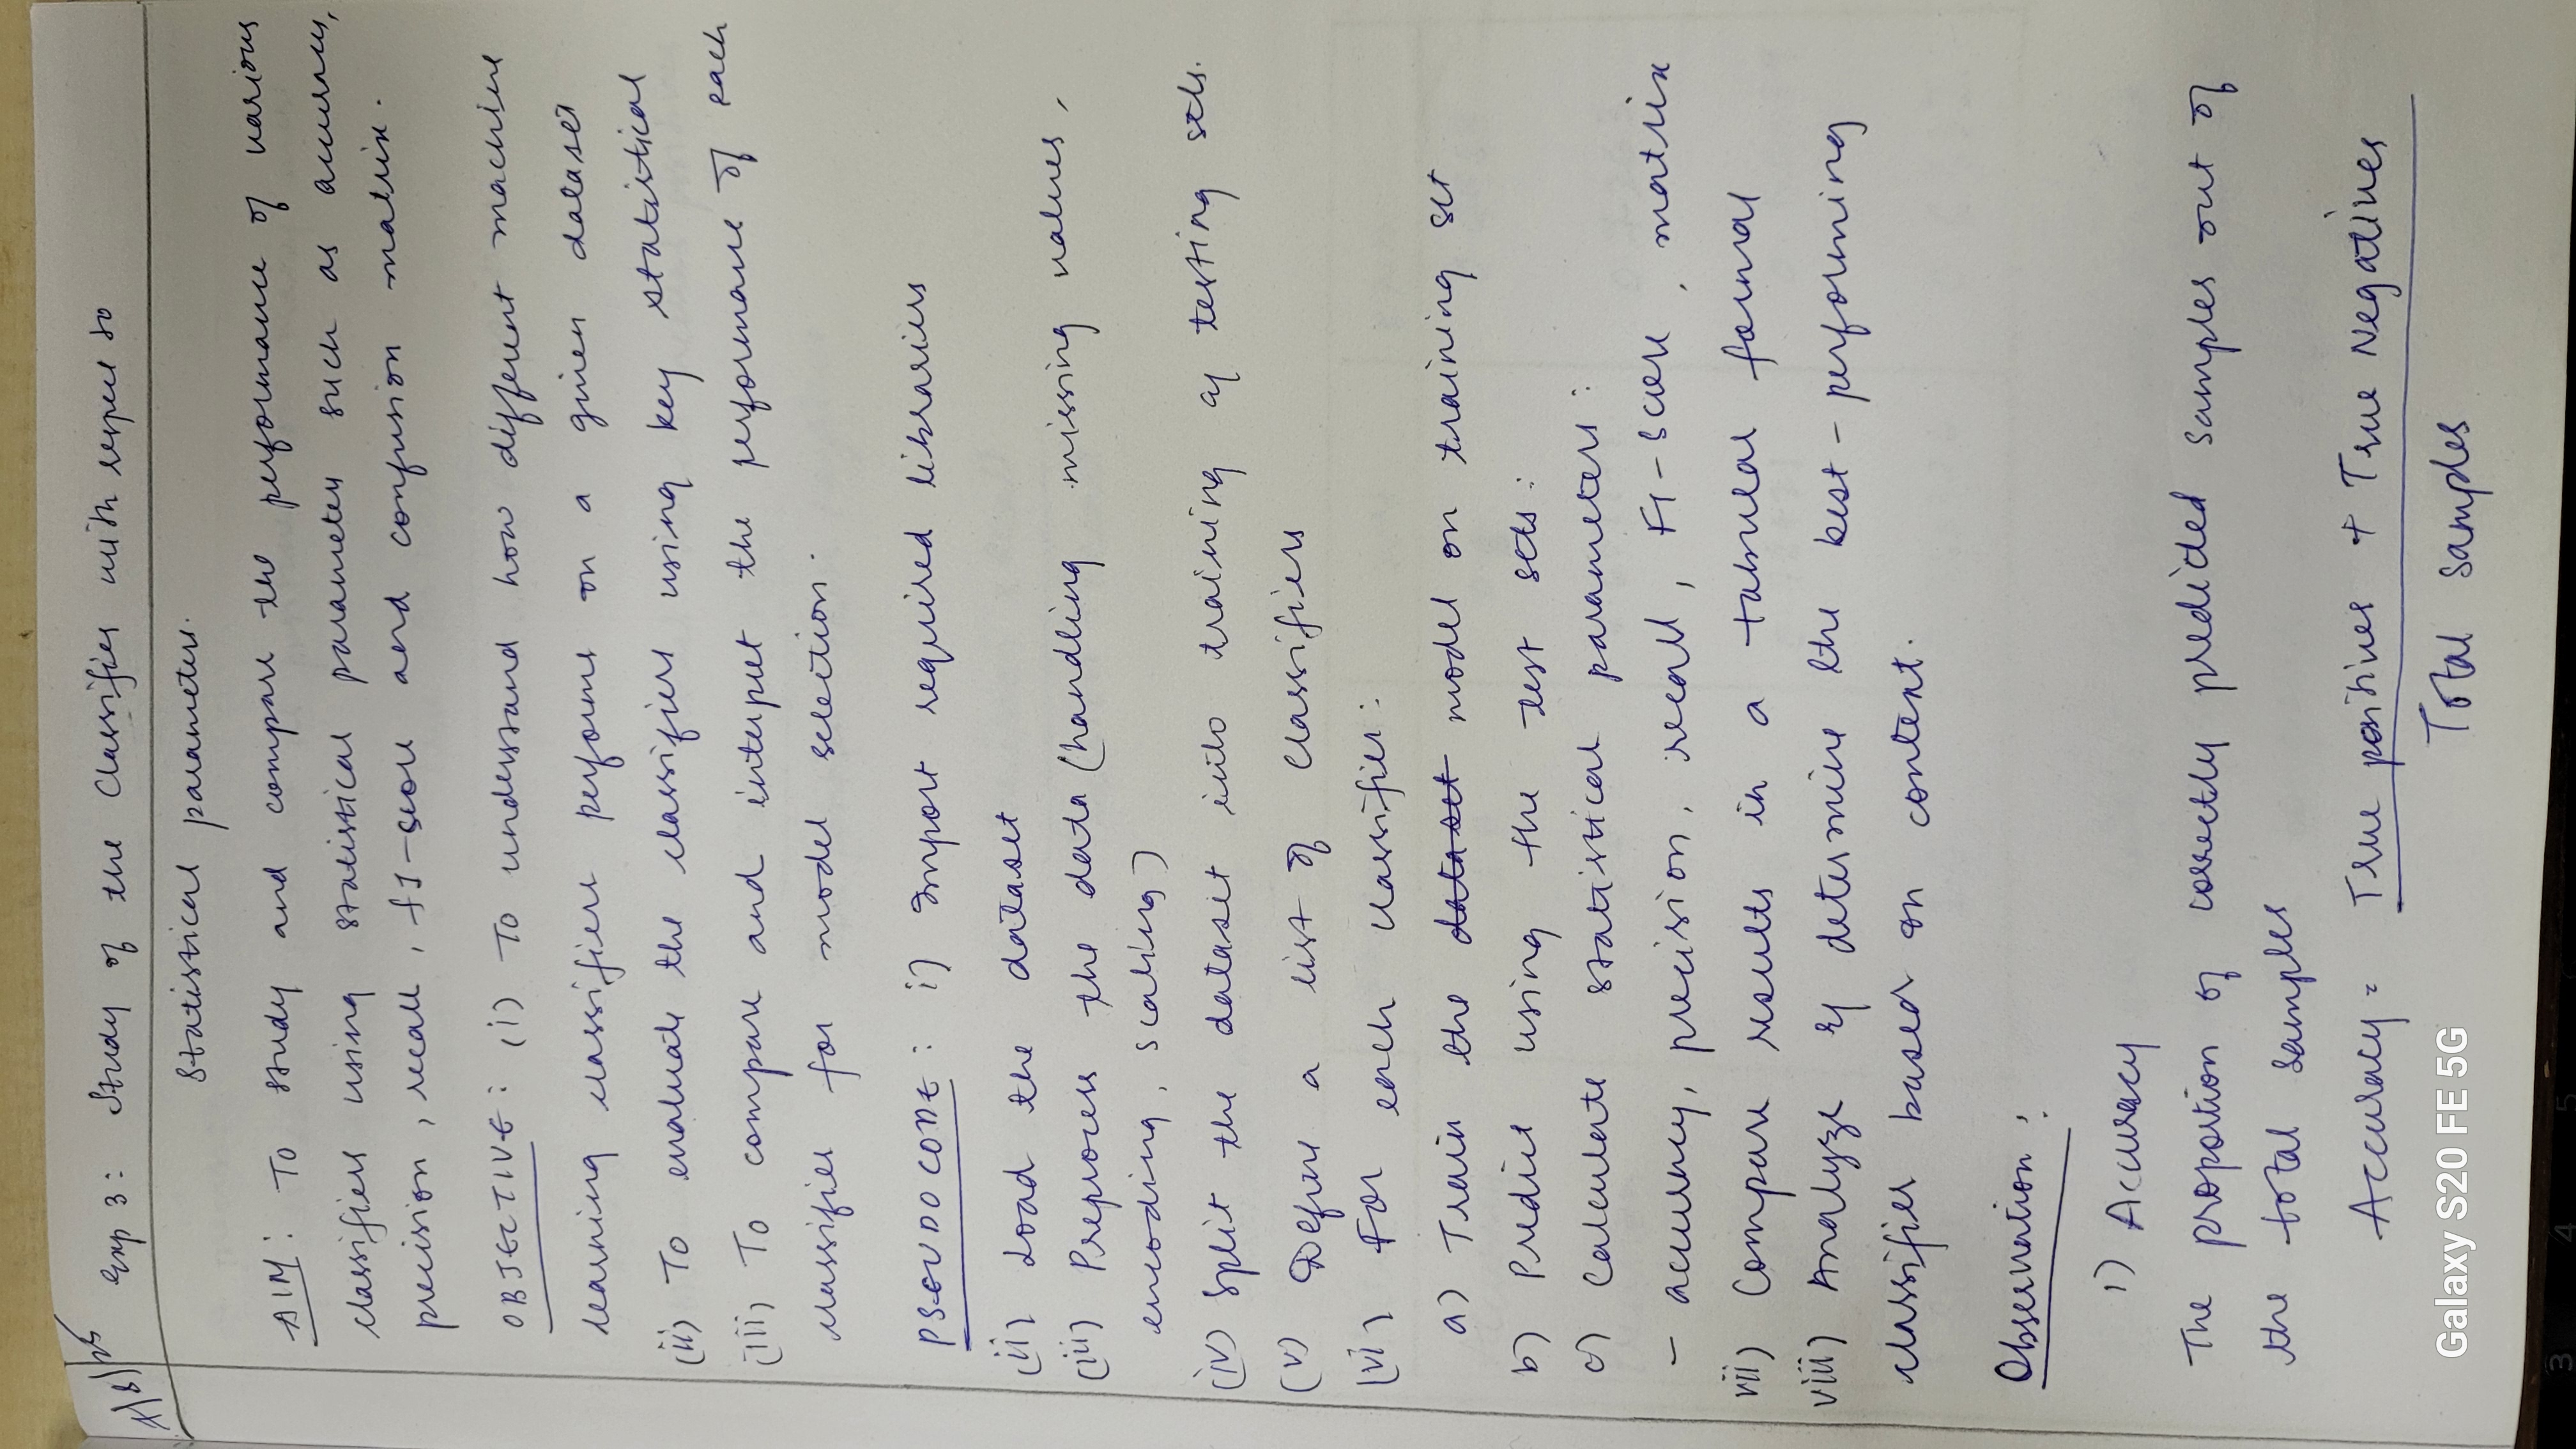 7/8/25
Exp 3: Study of the Classifier with respect to
Statistical parameters.
AIM: To study and compare the performance of various
classifiers using statistical parameters such as accuracy,
precision, recall, f1-score and confusion matrix.
OBJECTIVE: (i) To understand how different machine
learning classifiers performs on a given dataset
(ii) To evaluate the classifiers using key statistical
(iii) To compare and interpret the performance of each
classifier for model selection.
PSEUDOCODE: i) Import required libraries
(ii) Load the dataset
(iii) Preprocess the data (handling missing values,
encoding, scaling)
(iv) Split the dataset into training & testing sets.
(v) Define a list of classifiers
(vi) For each classifier:
a) Train the dataset model on training set
b) Predict using the test sets:
c) Calculate statistical parameters:
- accuracy, precision, recall, F1-Score, matrix
vii) Compare results in a tabular format
viii) Analyze & determine the best-performing
classifier based on context.
Observation:
1) Accuracy
The proportion of correctly predicted samples out of
the total samples
Accuracy = True positives + True Negatives
Total samples
Galaxy S20 FE 5G
3 4 5